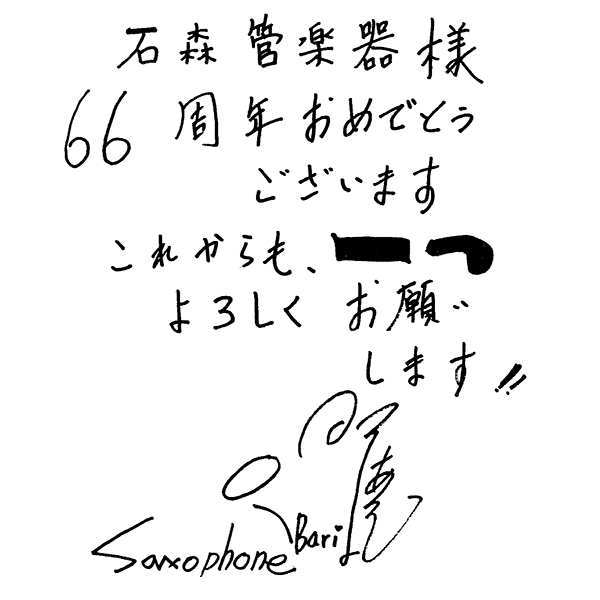 石森管楽器様
66周年おめでとう
ございます
これからも、一つ
よろしくお願い
します!!
Bari
Saxophone